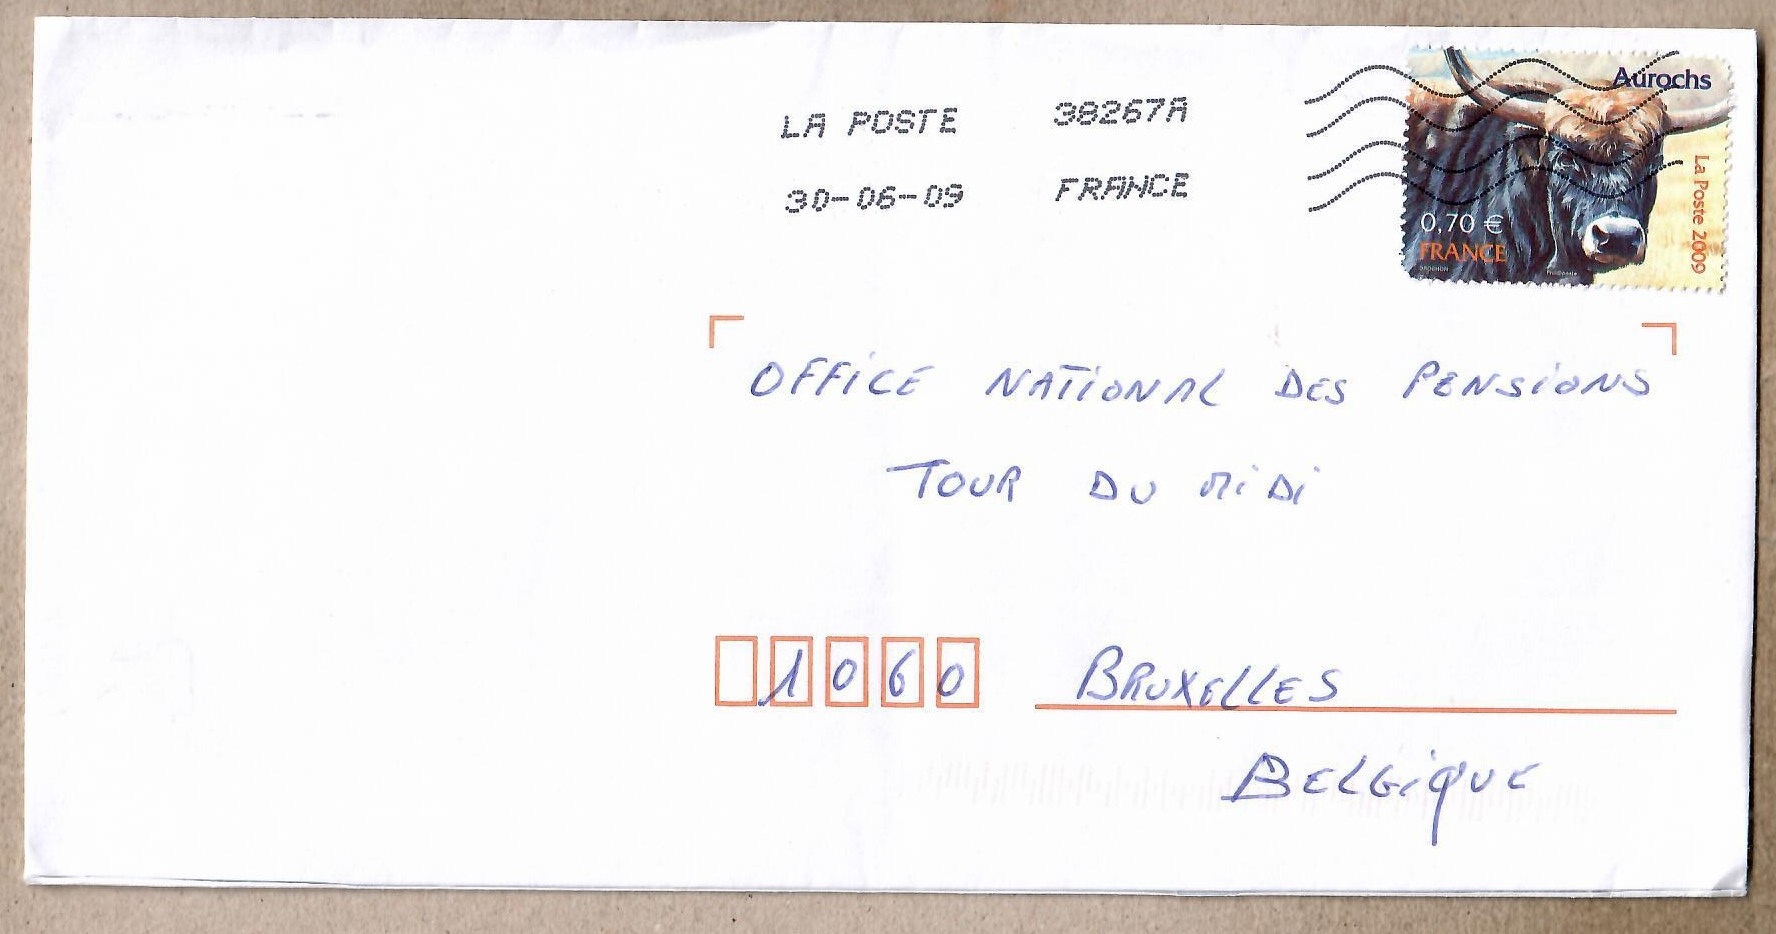 LA POSTE 38267A
30-06-09 FRANCE
Aurochs
La Poste 2009
0,70 €
FRANCE
OFFICE NATIONAL DES PENSIONS
TOUR DU MIDI
1060 BRUXELLES
BELGIQUE